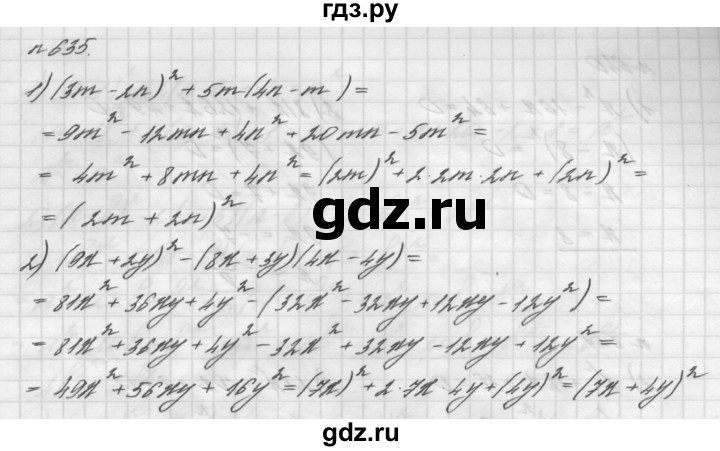 гдз.ру
n 635.
1) (3m - 2n)² + 5m(4n - m) =
= 9m² - 12mn + 4n² + 20mn - 5m² =
= 4m² + 8mn + 4n² = (2m)² + 2·2m·2n + (2n)² =
= (2m + 2n)²
gdz.ru
2) (9x + 2y)² - (8x + 3y)(4x - 4y) =
= 81x² + 36xy + 4y² - (32x² - 32xy + 12xy - 12y²) =
= 81x² + 36xy + 4y² - 32x² + 32xy - 12xy + 12y² =
= 49x² + 56xy + 16y² = (7x)² + 2·7x·4y + (4y)² = (7x + 4y)²
gdz.ru